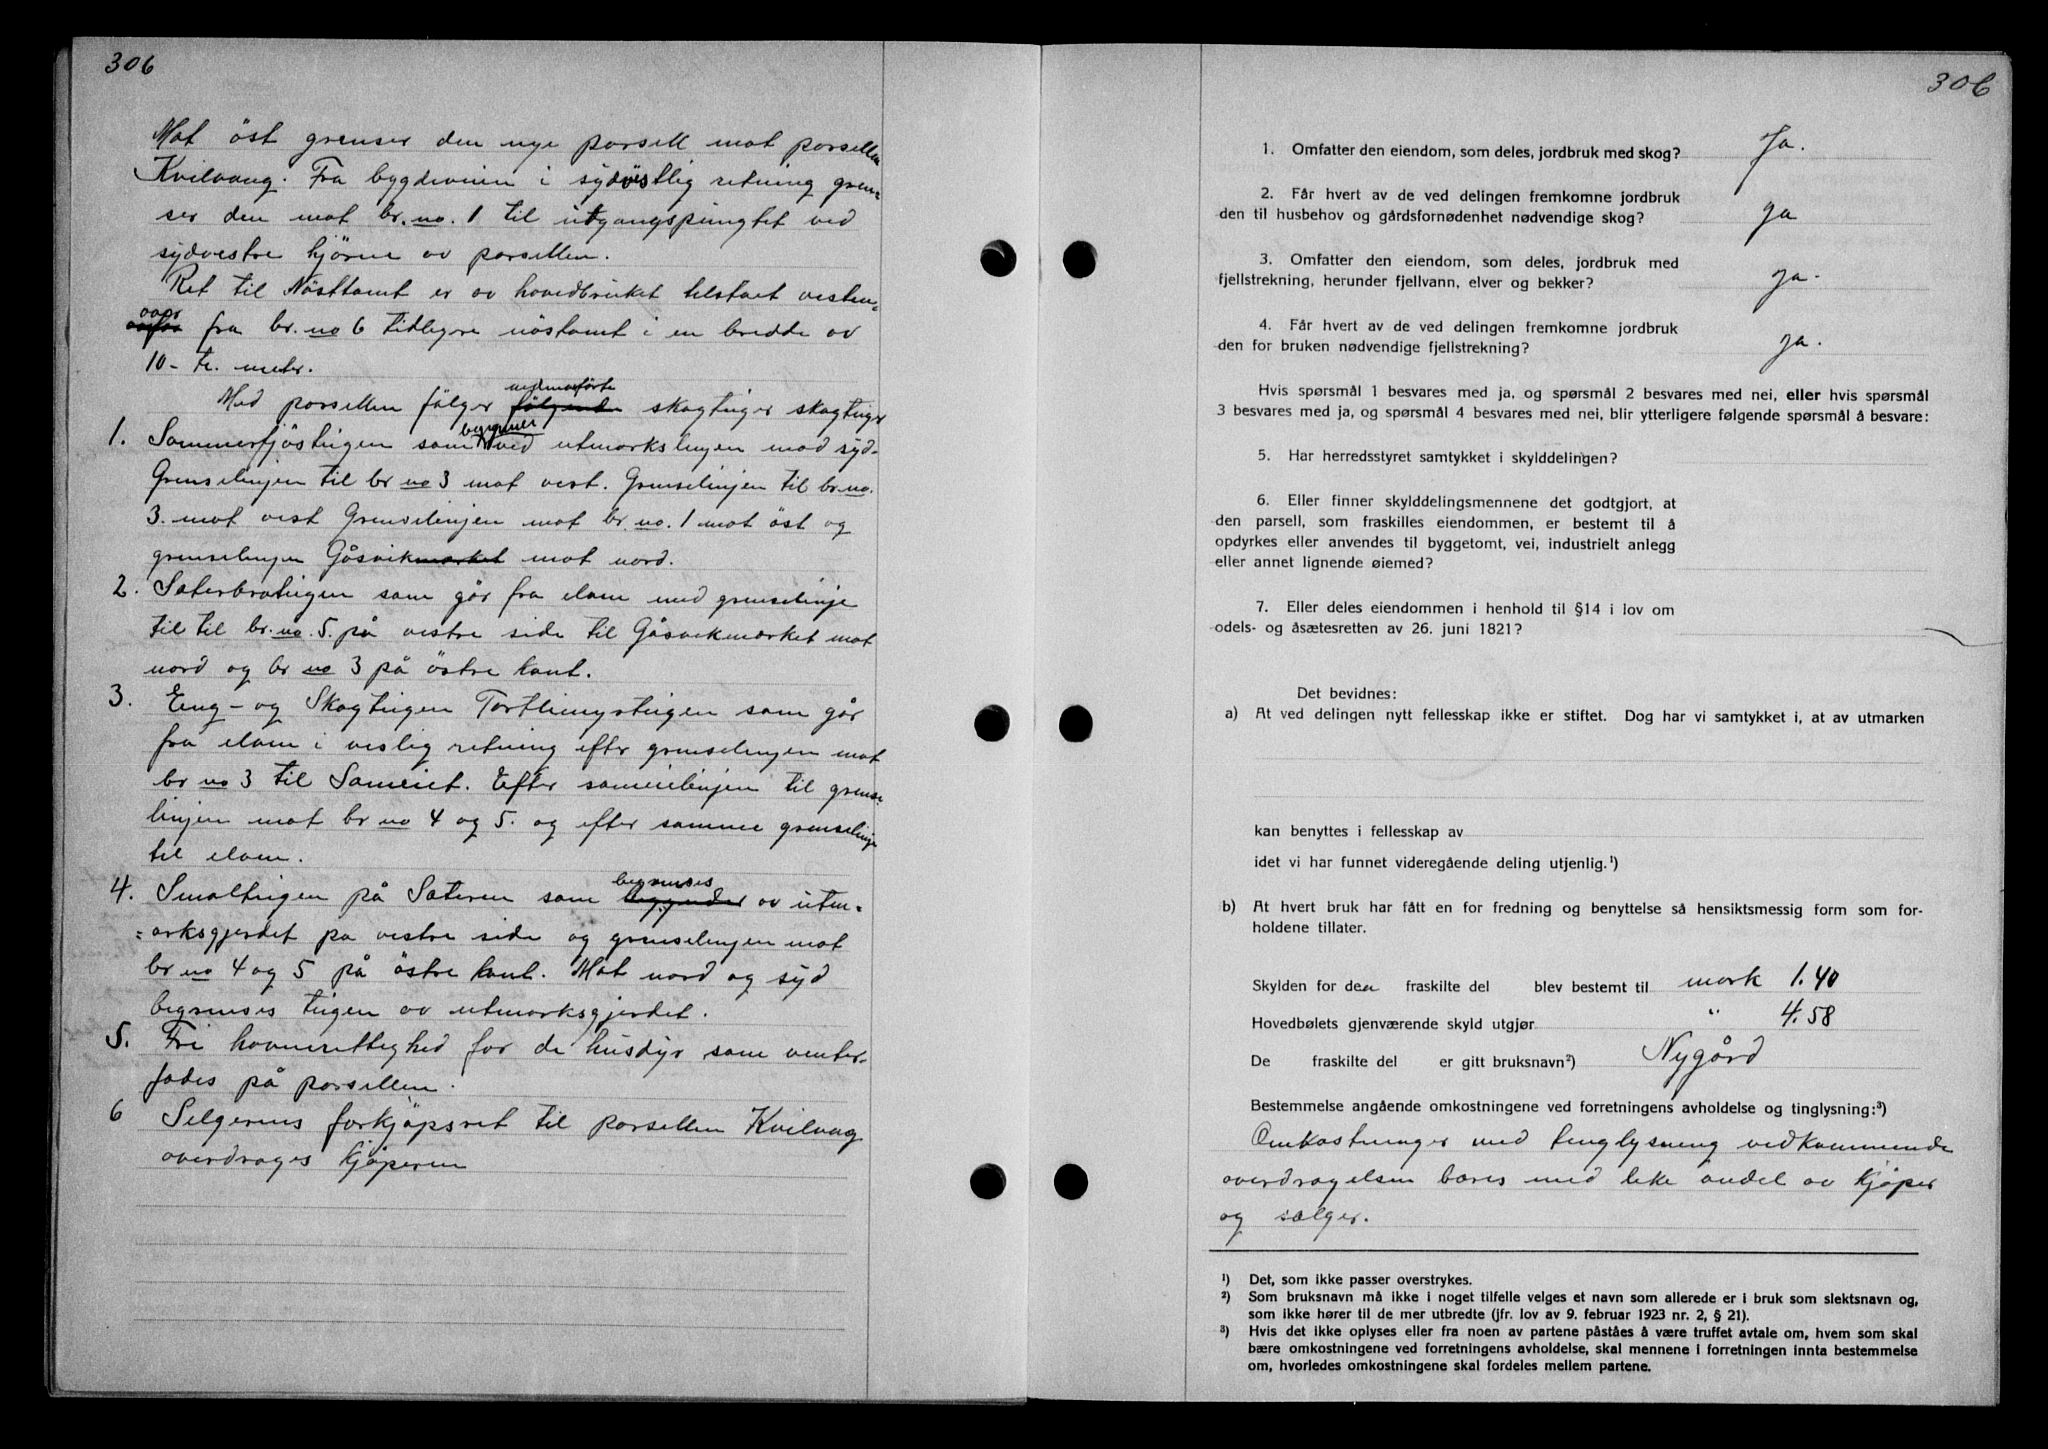 306
Mot öst grenser den nye parsell mot parsellen
Kvilvaag. Fra bygdeveien i sydvestlig retning gren-
ser den mot br. no. 1 til utgangspungtet ved
sydvestre hjörne av parsellen.
Ret til Nösttomt er av hovedbruket tilstaet vesten-
for fra br. no 6 tidligere nöstomt i en bredde av
10 - ti. meter.
Med parsellen fölger nedenforförte følgende skogteiger skogteiger
1. Sommerfjösteigen som begynner ved utmarkslinjen mod syd-
Grenselinjen til br no 3 mot vest. Grenselinjen til br. no.
3. mot vest Grenselinjen mot br. no. 1 mot öst og
grenselinjen Gåsvikmarket mot nord.
2. Säterbrateigen som går fra elven med grenselinje
til til br. no. 5. på vestre side til Gåsvikmarket mot
nord og br no 3 på östre kant.
3. Eng- og Skogteigen Torvlimyrteigen som går
fra elven i veslig retning efter grenselinjen mot
br no 3 til Sameiet. Efter sameielinjen til grense-
linjen mot br no 4 og 5. og efter samme grenselinje
til elven.
4. Smalteigen på Säteren som begrenses av utm-
=arksgjerdet på vestre side og grenselinjen mot
br no 4 og 5 på östre kant. Mot nord og syd
begrenses teigen av utmarksgjerdet.
5. Fri havnerettighed for de husdyr som venter-
fødes på parsellen.
6 Selgerens forkjöpsret til parsellen Kvilvaag
overdrages kjöperen
306
1. Omfatter den eiendom, som deles, jordbruk med skog? Ja.
2. Får hvert av de ved delingen fremkomne jordbruk
den til husbehov og gårdsfornødenhet nødvendige skog? ja
3. Omfatter den eiendom, som deles, jordbruk med
fjellstrekning, herunder fjellvann, elver og bekker? ja.
4. Får hvert av de ved delingen fremkomne jordbruk
den for bruken nødvendige fjellstrekning? ja.
Hvis spørsmål 1 besvares med ja, og spørsmål 2 besvares med nei, eller hvis spørsmål
3 besvares med ja, og spørsmål 4 besvares med nei, blir ytterligere følgende spørsmål å besvare:
5. Har herredsstyret samtykket i skylddelingen?
6. Eller finner skylddelingsmennene det godtgjort, at
den parsell, som fraskilles eiendommen, er bestemt til å
opdyrkes eller anvendes til byggetomt, vei, industrielt anlegg
eller annet lignende øiemed?
7. Eller deles eiendommen i henhold til §14 i lov om
odels- og åsætesretten av 26. juni 1821?
Det bevidnes:
a) At ved delingen nytt fellesskap ikke er stiftet. Dog har vi samtykket i, at av utmarken
kan benyttes i fellesskap av
idet vi har funnet videregående deling utjenlig.¹)
b) At hvert bruk har fått en for fredning og benyttelse så hensiktsmessig form som for-
holdene tillater.
Skylden for den fraskilte del blev bestemt til mark 1.40
Hovedbølets gjenværende skyld utgjør " 4.58
De fraskilte del er gitt bruksnavn²) Nygård
Bestemmelse angående omkostningene ved forretningens avholdelse og tinglysning:³)
Omkostninger med tinglysning vedkommende
overdragelsen bæres med like andel av kjöper
og sælger.
¹) Det, som ikke passer overstrykes.
²) Som bruksnavn må ikke i noget tilfelle velges et navn som allerede er i bruk som slektsnavn og,
som ikke hører til de mer utbredte (jfr. lov av 9. februar 1923 nr. 2, § 21).
³) Hvis det ikke oplyses eller fra noen av partene påståes å være truffet avtale om, hvem som skal
bære omkostningene ved forretningens avholdelse, skal mennene i forretningen innta bestemmelse
om, hvorledes omkostningene skal fordeles mellem partene.